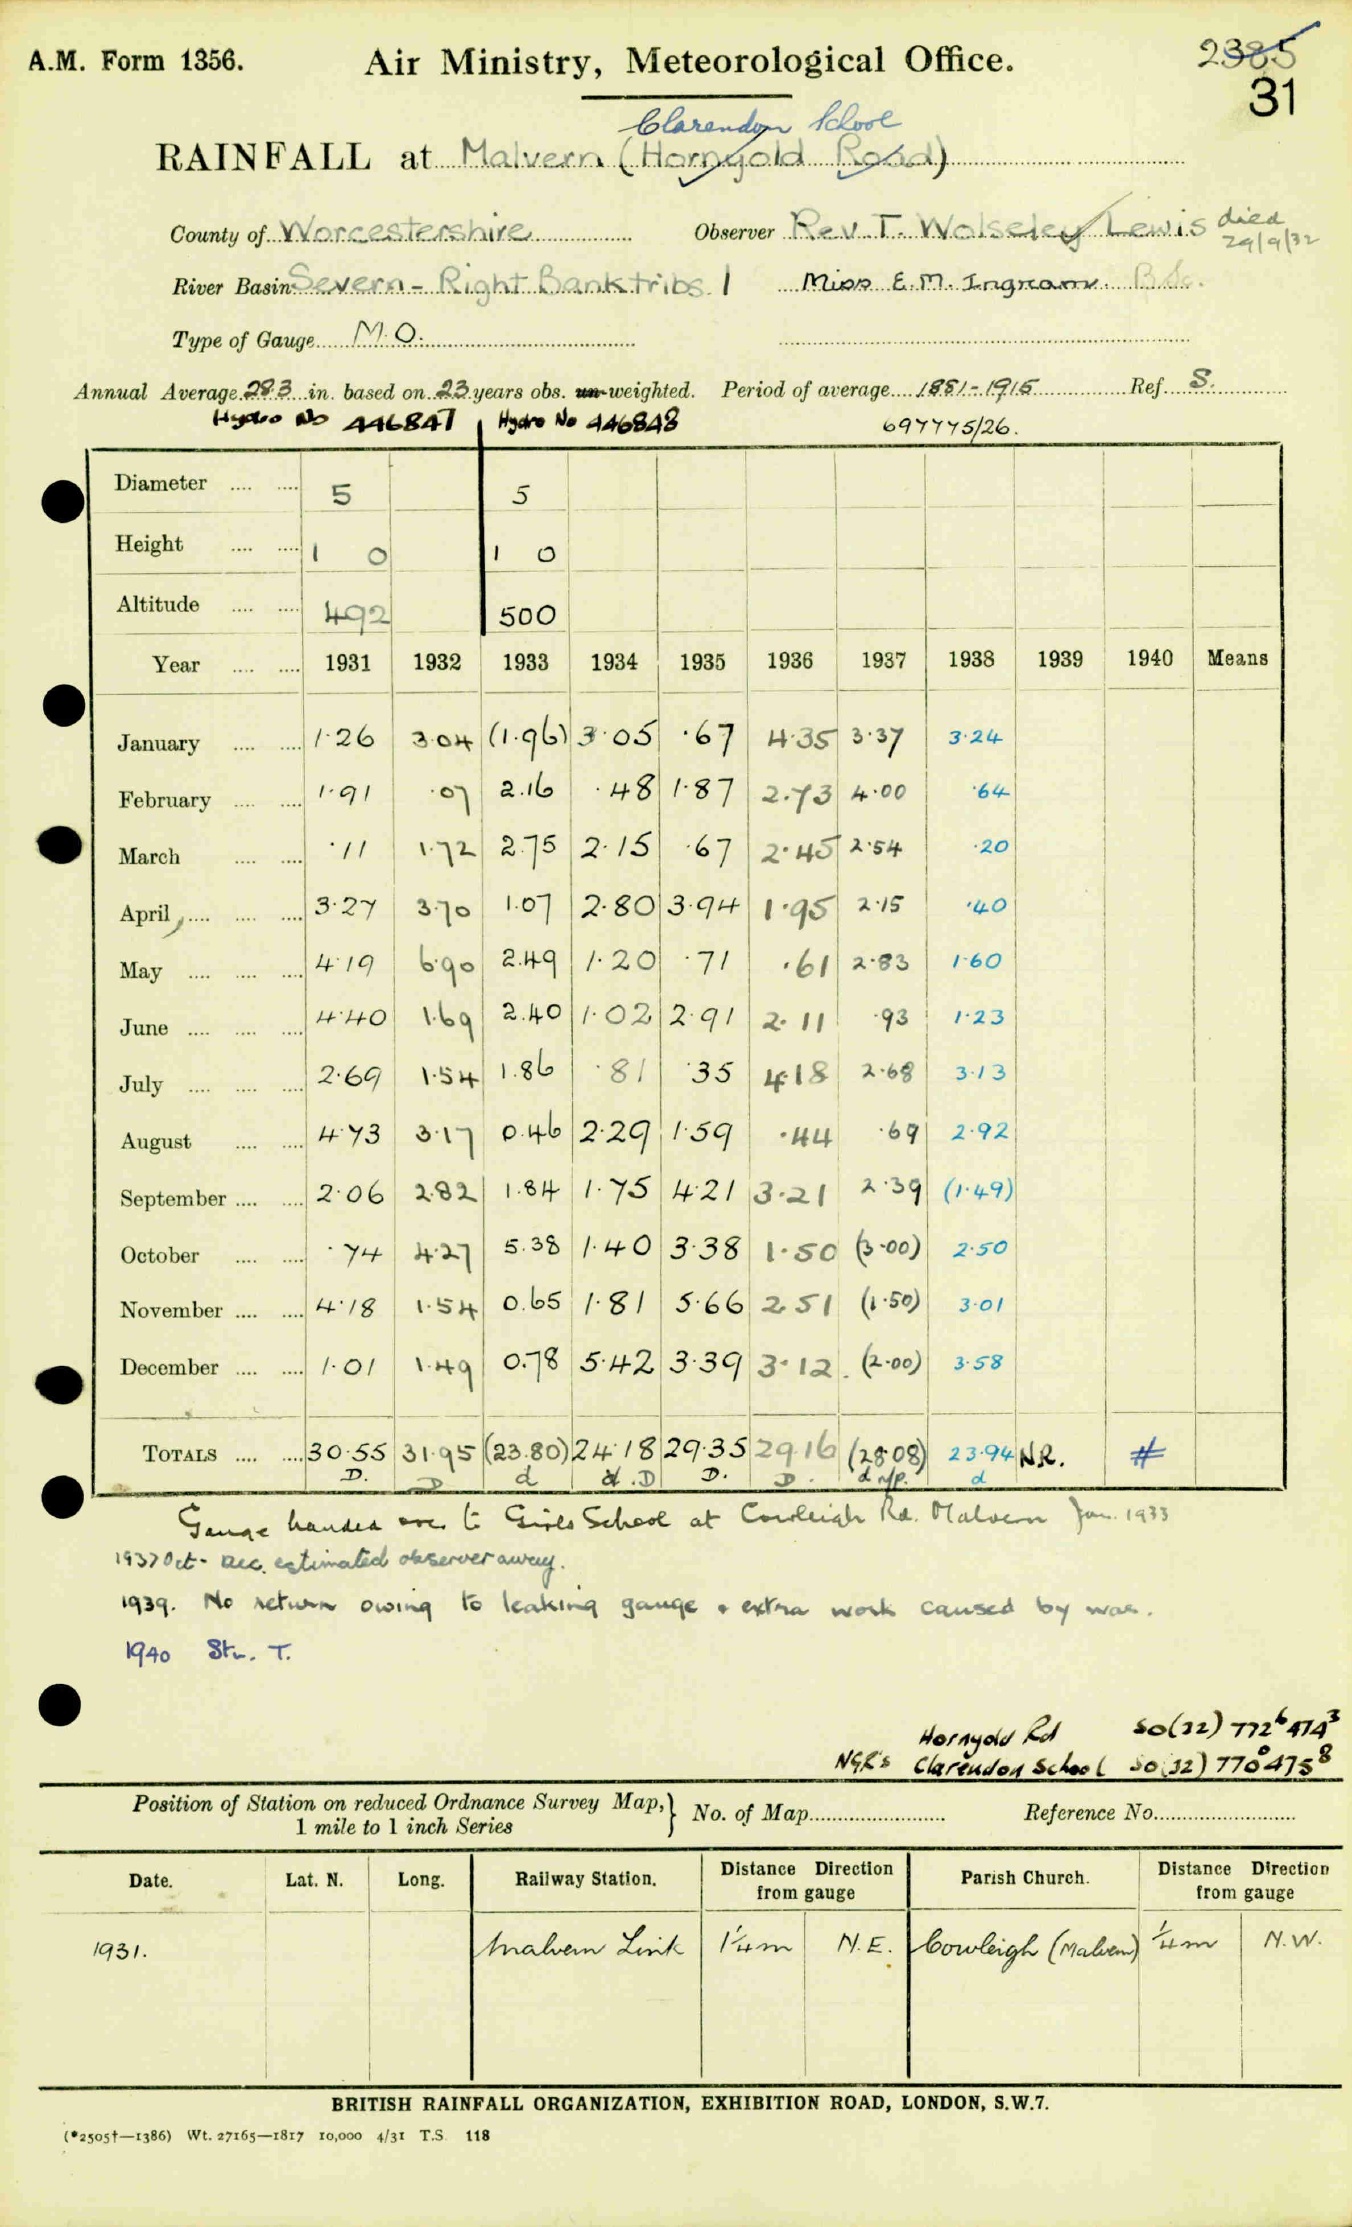 A.M. Form 1356. Air Ministry, Meteorological Office. 2385
31
Clarendon School
RAINFALL at Malvern (Hornyold Road)
County of Worcestershire Observer Rev. T. Wolseley Lewis died 29/9/32
River Basin Severn - Right Bank tribs. 1 Miss E. M. Ingram. B.Sc.
Type of Gauge M.O.
Annual Average 28.3 in. based on 23 years obs. un-weighted. Period of average 1881-1915 Ref. S.
Hydro No 446847 Hydro No 446848 697775/26.
Diameter .... .... 5 5
Height .... .... 1 0 1 0
Altitude .... .... 492 500
Year .... .... 1931 1932 1933 1934 1935 1936 1937 1938 1939 1940 Means
January .... .... 1.26 3.04 (1.96) 3.05 .67 4.35 3.37 3.24
February .... .... 1.91 .07 2.16 .48 1.87 2.73 4.00 .64
March .... .... .11 1.72 2.75 2.15 .67 2.45 2.54 .20
April .... .... .... 3.27 3.70 1.07 2.80 3.94 1.95 2.15 .40
May .... .... .... 4.19 6.90 2.49 1.20 .71 .61 2.83 1.60
June .... .... .... 4.40 1.69 2.40 1.02 2.91 2.11 .93 1.23
July .... .... .... 2.69 1.54 1.86 .81 .35 4.18 2.68 3.13
August .... .... 4.73 3.17 0.46 2.29 1.59 .44 .69 2.92
September .... .... 2.06 2.82 1.84 1.75 4.21 3.21 2.39 (1.49)
October .... .... .74 4.27 5.38 1.40 3.38 1.50 (3.00) 2.50
November .... .... 4.18 1.54 0.65 1.81 5.66 2.51 (1.50) 3.01
December .... .... 1.01 1.49 0.78 5.42 3.39 3.12 (2.00) 3.58
TOTALS .... .... 30.55 31.95 (23.80) 24.18 29.35 29.16 (28.08) 23.94 N.R. #
D. D d d. D D. D. d d
Gauge handed over to Girls School at Cowleigh Rd. Malvern Jan. 1933
1937 Oct - Dec. estimated observer away.
1939. No return owing to leaking gauge & extra work caused by war.
1940 Stn. T.
Hornyold Rd SO(32) 772⁶ 474³
NGR's Clarendon School SO(32) 770⁰ 475⁸
Position of Station on reduced Ordnance Survey Map, 1 mile to 1 inch Series } No. of Map Reference No.
Date. Lat. N. Long. Railway Station. Distance Direction from gauge Parish Church. Distance Direction from gauge
1931. Malvern Link 1¼m N.E. Cowleigh (Malvern) ¼m N.W.
BRITISH RAINFALL ORGANIZATION, EXHIBITION ROAD, LONDON, S.W.7.
(*2505†—1386) Wt. 27165—1817 10,000 4/31 T.S. 118